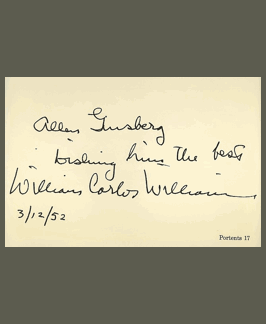 Allen Ginsberg
wishing him the best
William Carlos Williams
3/12/52
Portents 17